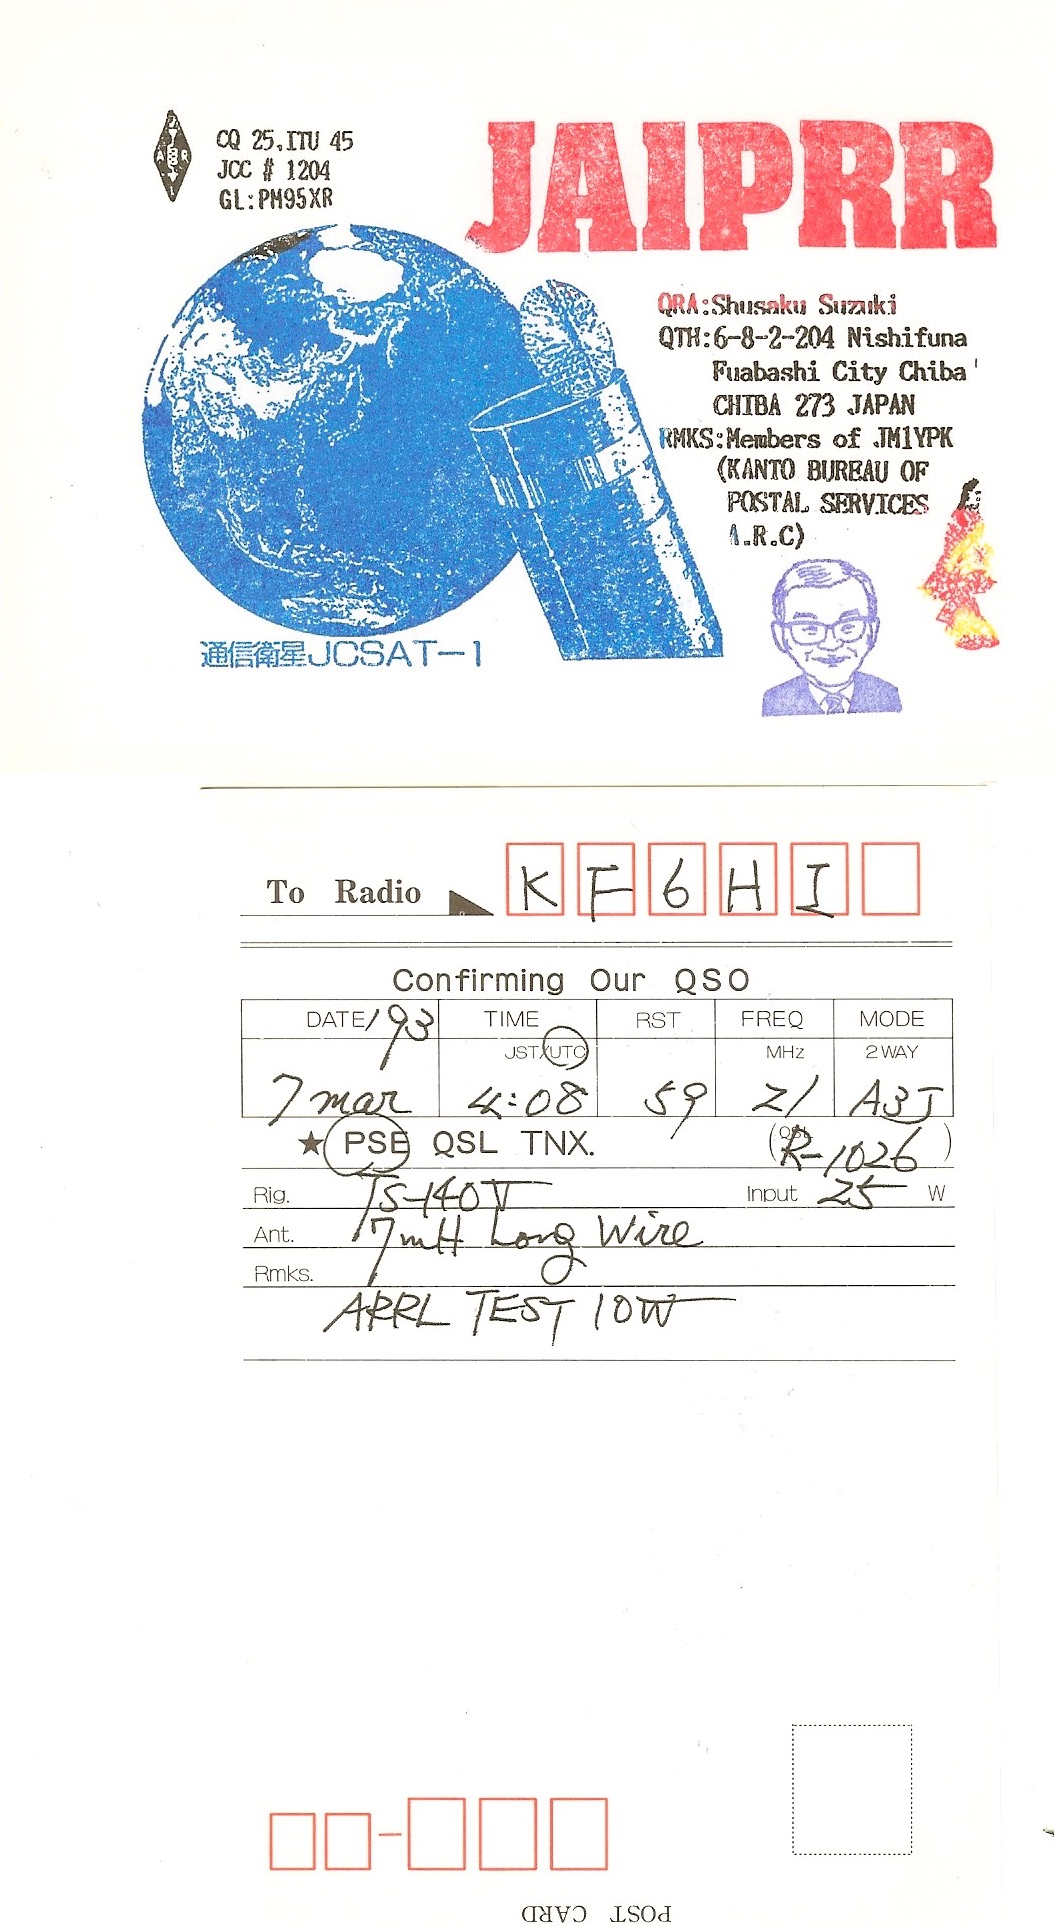 CQ 25,ITU 45
JCC # 1204
GL:PM95XR
JARL
JAIPRR
QRA:Shusaku Suzuki
QTH:6-8-2-204 Nishifuna
Fuabashi City Chiba
CHIBA 273 JAPAN
RMKS:Members of JM1YPK
(KANTO BUREAU OF
POSTAL SERVICES
A.R.C)
通信衛星JCSAT-1
To Radio KF6HI
Confirming Our QSO
DATE/93 TIME RST FREQ MODE
JST/UTC MHz 2WAY
7 mar 4:08 59 21 A3J
★ PSE QSL TNX. (QSL R-1026)
Rig. TS-140V Input 25 W
Ant. 7mH Long Wire
Rmks.
ARRL TEST 10W
POST CARD